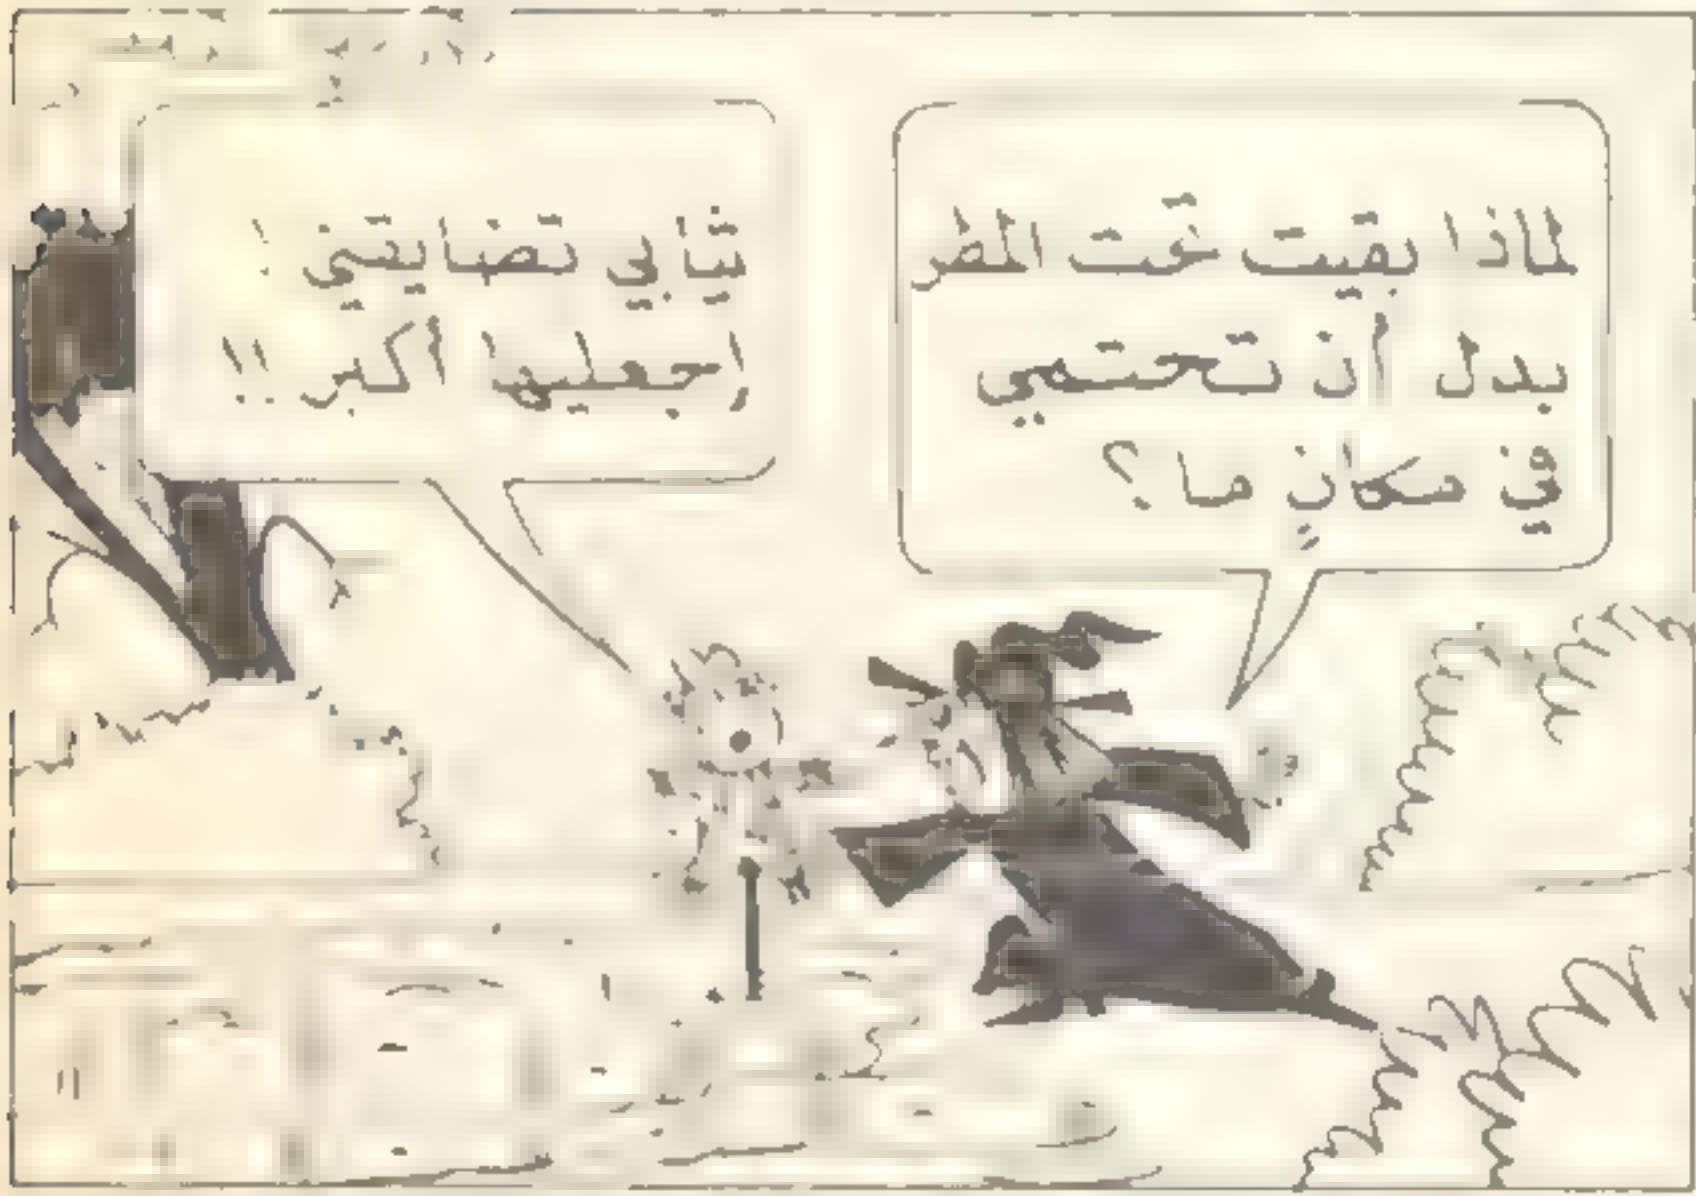 لماذا بقيت تحّت المطر
بدل أن تحتمي
في مكانٍ ما ؟
ثيابي تضايقني !
إجعليها أكبر !!